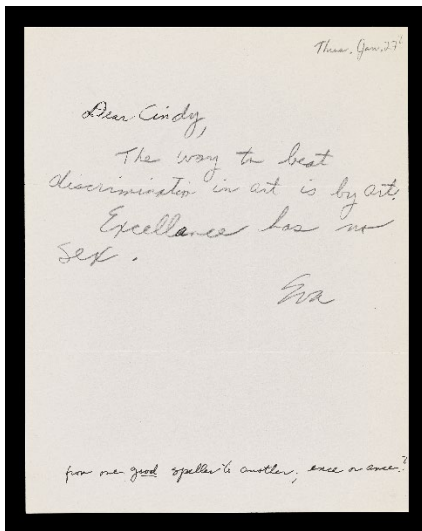 Thurs. Jan. 27
Dear Cindy,
The way to beat
discrimination in art is by art.
Excellance has no
sex.
Eva
from one good speller to another, ence or ance?